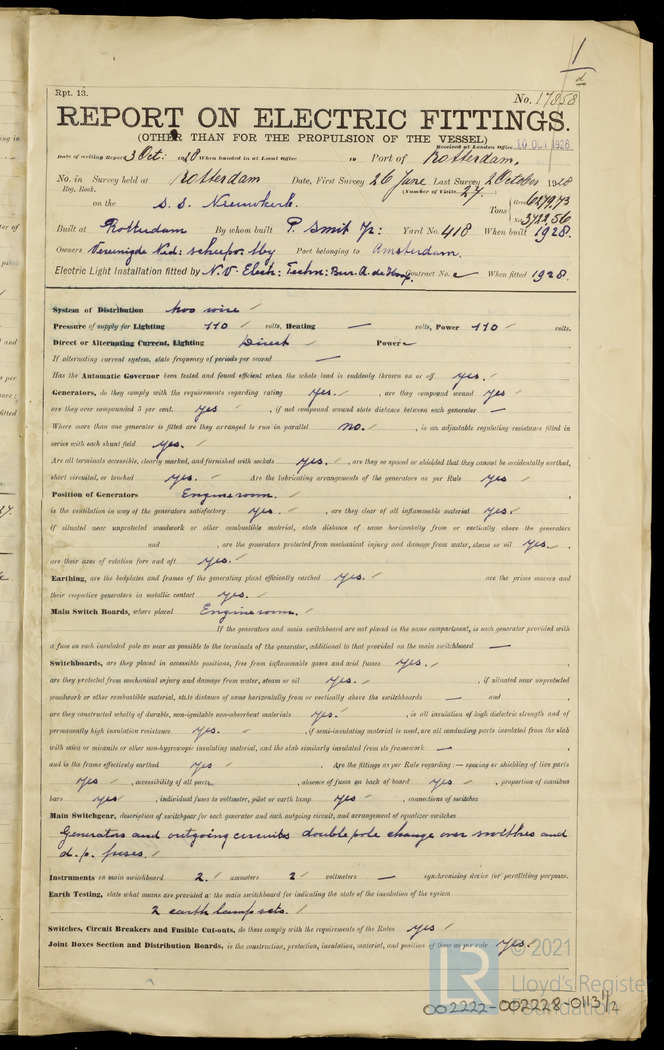 1
d
Rpt. 13.
No. 17858
REPORT ON ELECTRIC FITTINGS.
(OTHER THAN FOR THE PROPULSION OF THE VESSEL)
Received at London Office 10 OCT 1928
Date of writing Report 3 Oct: 1928 When handed in at Local Office 19 Port of Rotterdam.
No. in Survey held at Rotterdam Date, First Survey 26 June Last Survey 2 October 1928
Reg. Book. (Number of Visits 27.)
on the S.S. Nieuwkerk. Tons { Gross 6279,73
Net 3722,56
Built at Rotterdam By whom built P. Smit Jr: Yard No. 418 When built 1928.
Owners Vereenigde Ned: scheepv. My Port belonging to Amsterdam.
Electric Light Installation fitted by N.V. Elech: Techn: Bur. A. de Hoop. Contract No. When fitted 1928.
System of Distribution two wire
Pressure of supply for Lighting 110 volts, Heating — volts, Power 110 volts.
Direct or Alternating Current, Lighting Direct Power
If alternating current system, state frequency of periods per second —
Has the Automatic Governor been tested and found efficient when the whole load is suddenly thrown on or off yes.
Generators, do they comply with the requirements regarding rating yes. , are they compound wound yes
are they over compounded 5 per cent. yes , if not compound wound state distance between each generator —
Where more than one generator is fitted are they arranged to run in parallel no. , is an adjustable regulating resistance fitted in
series with each shunt field yes.
Are all terminals accessible, clearly marked, and furnished with sockets yes. , are they so spaced or shielded that they cannot be accidentally earthed,
short circuited, or touched yes. Are the lubricating arrangements of the generators as per Rule yes
Position of Generators Engineroom.
is the ventilation in way of the generators satisfactory yes. , are they clear of all inflammable material yes.
if situated near unprotected woodwork or other combustible material, state distance of same horizontally from or vertically above the generators
and , are the generators protected from mechanical injury and damage from water, steam or oil yes.
are their axes of rotation fore and aft yes.
Earthing, are the bedplates and frames of the generating plant efficiently earthed yes. are the prime movers and
their respective generators in metallic contact yes.
Main Switch Boards, where placed Engineroom.
If the generators and main switchboard are not placed in the same compartment, is each generator provided with
a fuse on each insulated pole as near as possible to the terminals of the generator, additional to that provided on the main switchboard —
Switchboards, are they placed in accessible positions, free from inflammable gases and acid fumes yes.
are they protected from mechanical injury and damage from water, steam or oil yes. , if situated near unprotected
woodwork or other combustible material, state distance of same horizontally from or vertically above the switchboards — and
are they constructed wholly of durable, non-ignitable non-absorbent materials yes. , is all insulation of high dielectric strength and of
permanently high insulation resistance yes. , if semi-insulating material is used, are all conducting parts insulated from the slab
with mica or micanite or other non-hygroscopic insulating material, and the slab similarly insulated from its framework —
and is the frame effectively earthed yes Are the fittings as per Rule regarding :— spacing or shielding of live parts
yes , accessibility of all parts , absence of fuses on back of board yes , proportion of omnibus
bars yes , individual fuses to voltmeter, pilot or earth lamp yes , connections of switches
Main Switchgear, description of switchgear for each generator and each outgoing circuit, and arrangement of equalizer switches
Generators and outgoing circuits double pole change over switches and
d.p. fuses.
Instruments on main switchboard 2. ammeters 2 voltmeters — synchronising device for paralleling purposes.
Earth Testing, state what means are provided at the main switchboard for indicating the state of the insulation of the system
2 earth lamp sets.
Switches, Circuit Breakers and Fusible Cut-outs, do these comply with the requirements of the Rules yes
Joint Boxes Section and Distribution Boards, is the construction, protection, insulation, material, and position of these as per rule yes.
© 2021
Lloyd's Register
Foundation
002222-002228-0113 1/2